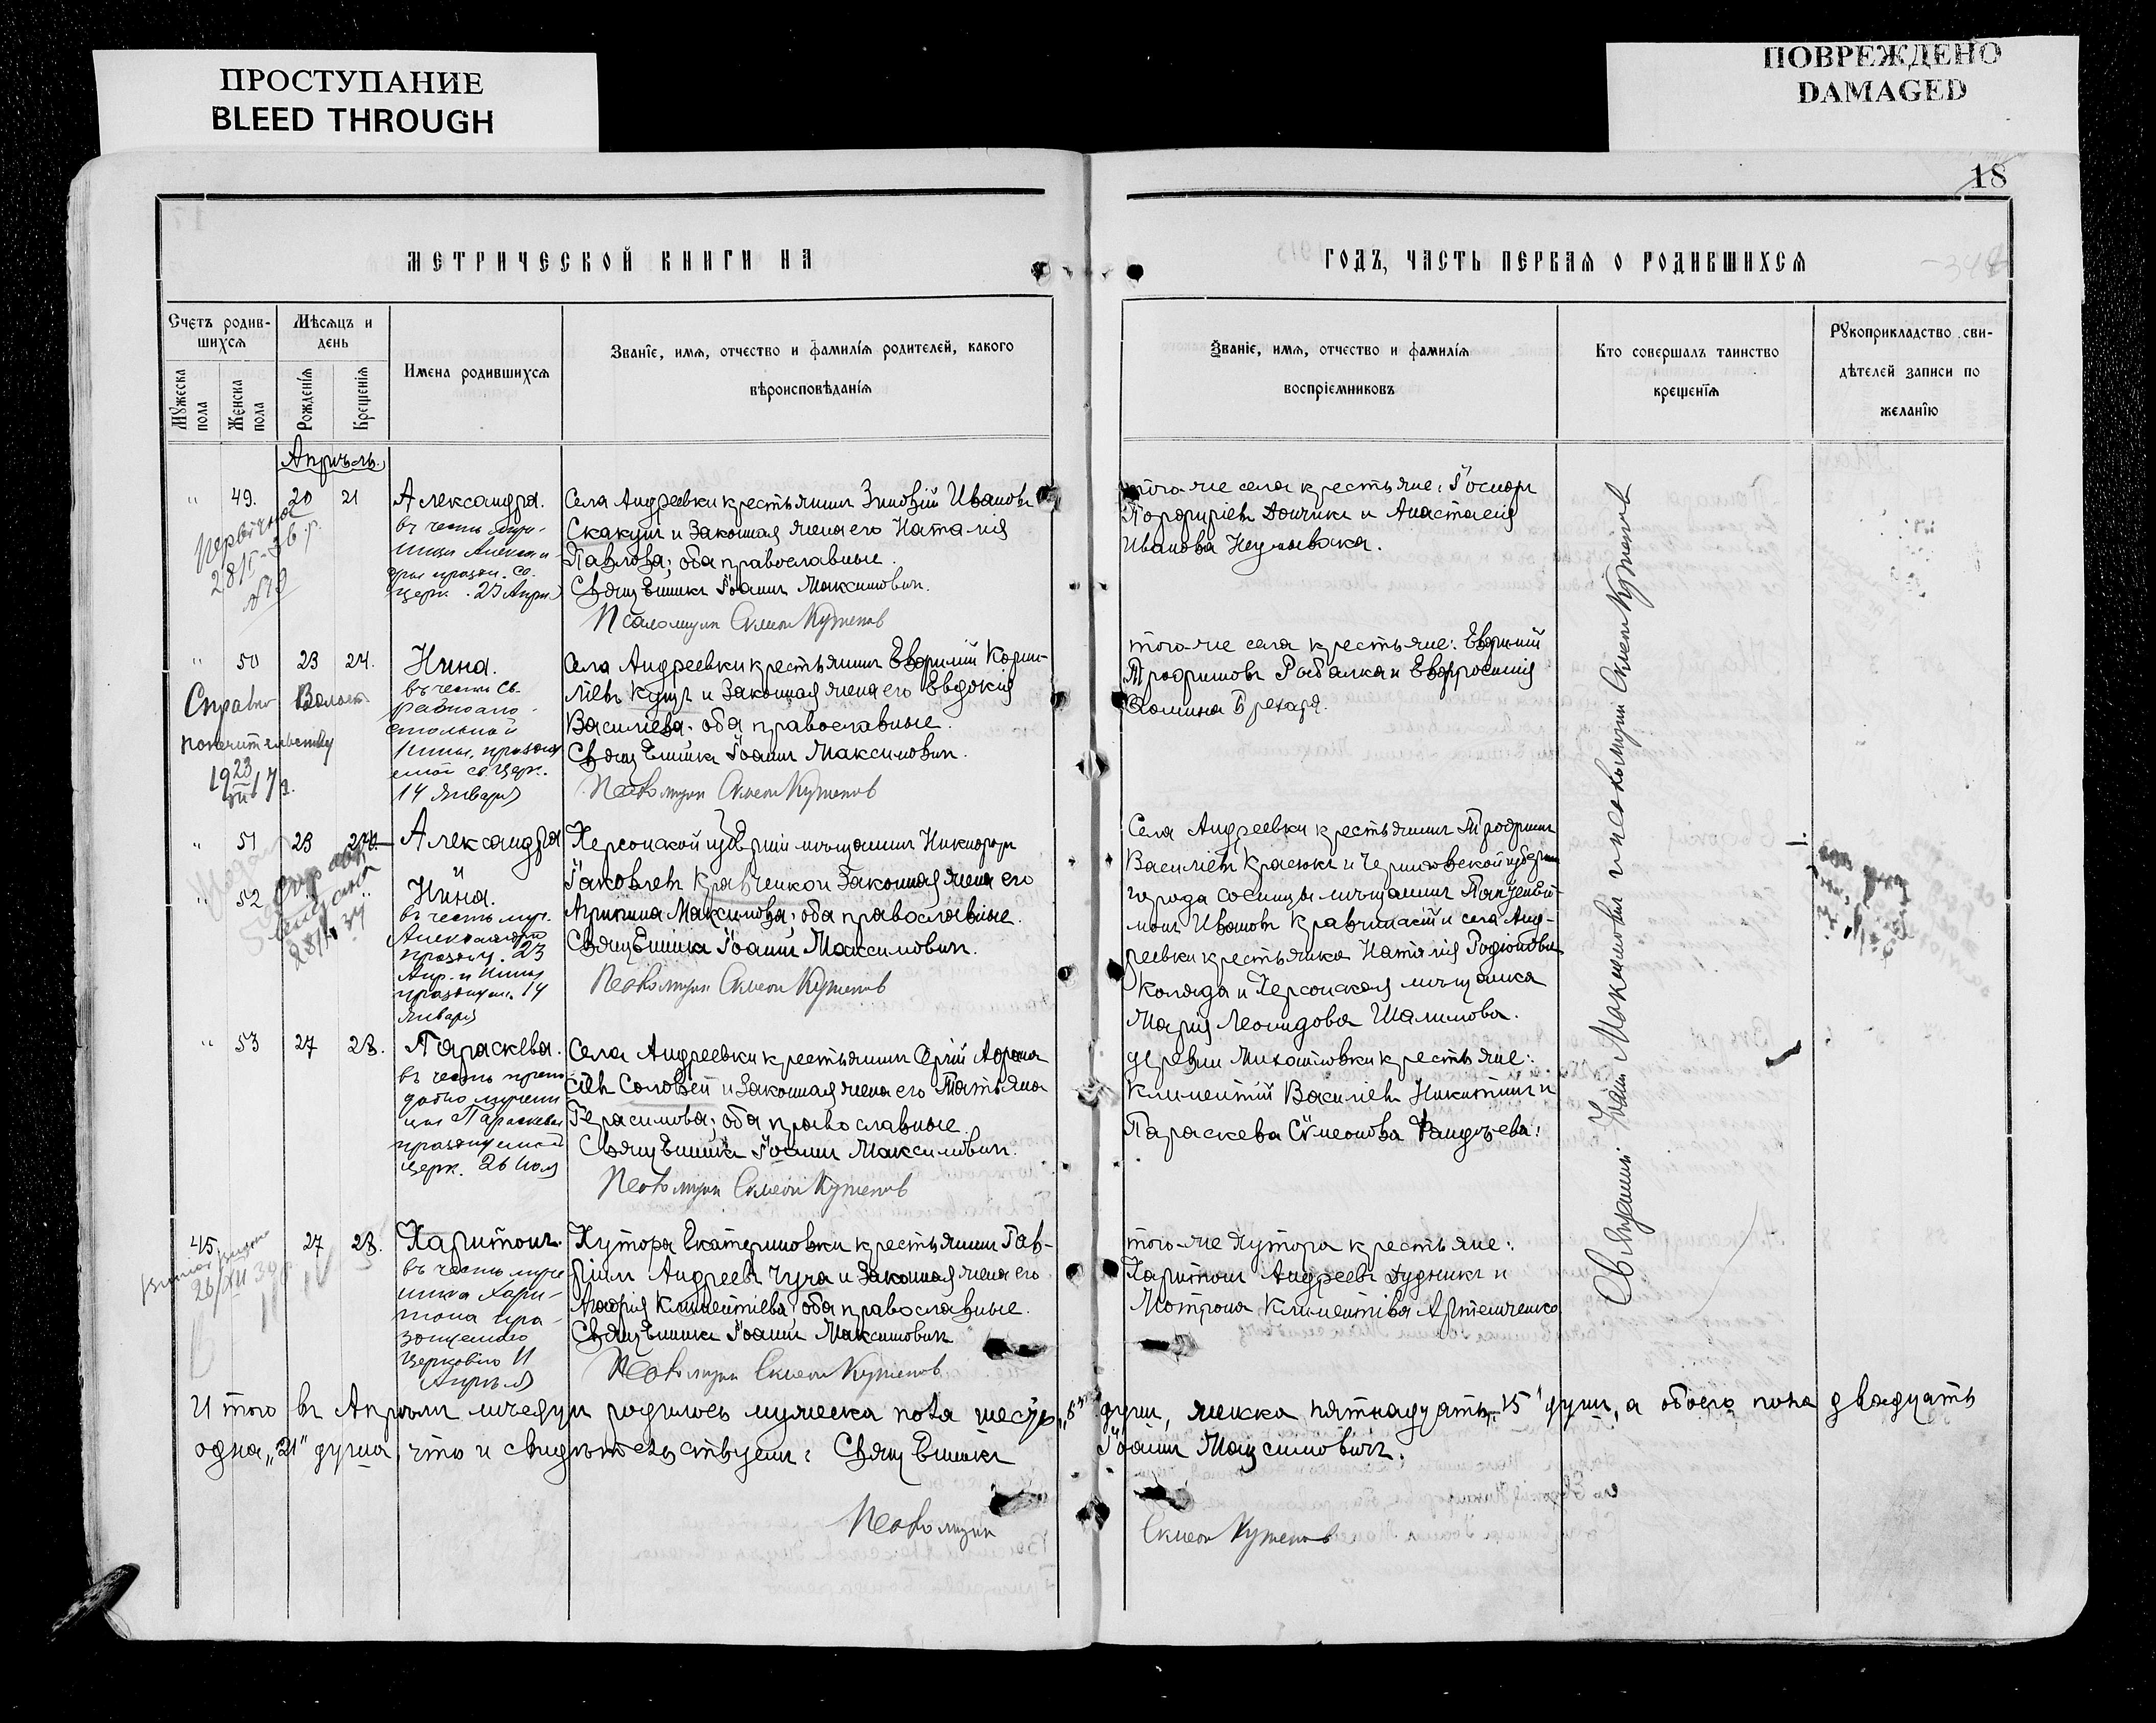 ПРОСТУПАНИЕ
BLEED THROUGH
ПОВРЕЖДЕНО
DAMAGED
18
МЕТРИЧЕСКОЙ КНИГИ НА
ГОДЪ, ЧАСТЬ ПЕРВАЯ О РОДИВШИХСЯ
Счетъ родив-
шихся
Мѣсяцъ и
день
Имена родившихся
Званїе, имя, отчество и фамилїя родителей, какого
вѣроисповѣданїя
Мужеска
пола
Женска
пола
Рожденїя
Крещенїя
Званїе, имя, отчество и фамилїя
воспрїемниковъ
Кто совершалъ таинство
крещенїя
Рукоприкладство сви-
дѣтелей записи по
желанїю
Апрѣль.
" 49. 20 21
Александра.
въ честь муче-
ницы Алексан-
дры праздн. св.
церк. 23 Апр.
Села Андреевки крестьянинъ Зиновій Ивановъ
Скакунъ и законная жена его Наталія
Павлова; оба православные.
Священникъ Іоаннъ Максимовичъ.
Псаломщик Симеон Кутепов
того-же села крестьяне: Іосифъ
Порфиріевъ Дончикъ и Анастасія
Иванова Неумывака.
" 50 23 24.
Нина.
въ честь св.
равноапо-
стольной
Нины, праздну
емой св. церк.
14 Января
Справка Волост
попечительству
Села Андреевки крестьянинъ Евфимій Корни-
ліевъ Куцъ и законная жена его Евдокія
Василіева; оба православные.
Священникъ Іоаннъ Максимовичъ.
Псаломщик Симеон Кутепов
того-же села крестьяне: Евфимій
Трофимовъ Рыбалка и Евфросинія
Фомина Брехаря.
" 51 23 24
Александра
" 52
и
Нина.
въ честь муч.
Александры
праздн. 23
Апр. и Нины
празднуем. 14
Января
Херсонской губерніи мѣщанинъ Никифоръ
Іаковлевъ Кравченко и законная жена его
Агрипина Максимова; оба православные.
Священникъ Іоаннъ Максимовичъ.
Псаломщик Симеон Кутепов
Села Андреевки крестьянинъ Трофимъ
Василіевъ Красюкъ и Черниговской губерніи
города Сосницы мѣщанинъ Пантелей-
монъ Ивановъ и села Анд-
реевки крестьянка Наталія Родіонова
Коляда и Херсонская мѣщанка
Марія Леонидова Шалимова.
" 53 27 28.
Параскева.
въ честь препо
добно мучени
цы Параскевы
празднуемой
церк. 26 Іюля
Села Андреевки крестьянинъ Сергій Афана
сіевъ Соловей и законная жена его Татьяна
Герасимова; оба православные.
Священникъ Іоаннъ Максимовичъ.
Псаломщик Симеон Кутепов
деревни Михайловки крестьяне:
Климентій Василіевъ Никитинъ и
Параскева Симеонова
45 27 28.
Харитонъ.
въ честь муче
ника Хари-
тона пра-
зднуемаго
Церковію 11
Апрѣля
Хутора Екатериновки крестьянинъ Гав-
ріилъ Андреевъ Чуча и законная жена его
Агафія Климентіева; оба православные.
Священникъ Іоаннъ Максимовичъ
Псаломщик Симеон Кутепов
того-же хутора крестьяне:
Харитонъ Андреевъ Дудникъ и
Мотрона Климентіева Артемченко
Священникъ Іоаннъ Максимовичъ и псаломщик Симеон Кутепов
Итого въ Апрѣлѣ мѣсяцѣ родилось мужеска пола шесть „6" душъ, женска пятнадцать „15" душъ, а обоего пола двадцать
одна „21" душа, что и свидѣтельствуемъ: Священникъ Іоаннъ Максимовичъ.
Псаломщик Симеон Кутепов